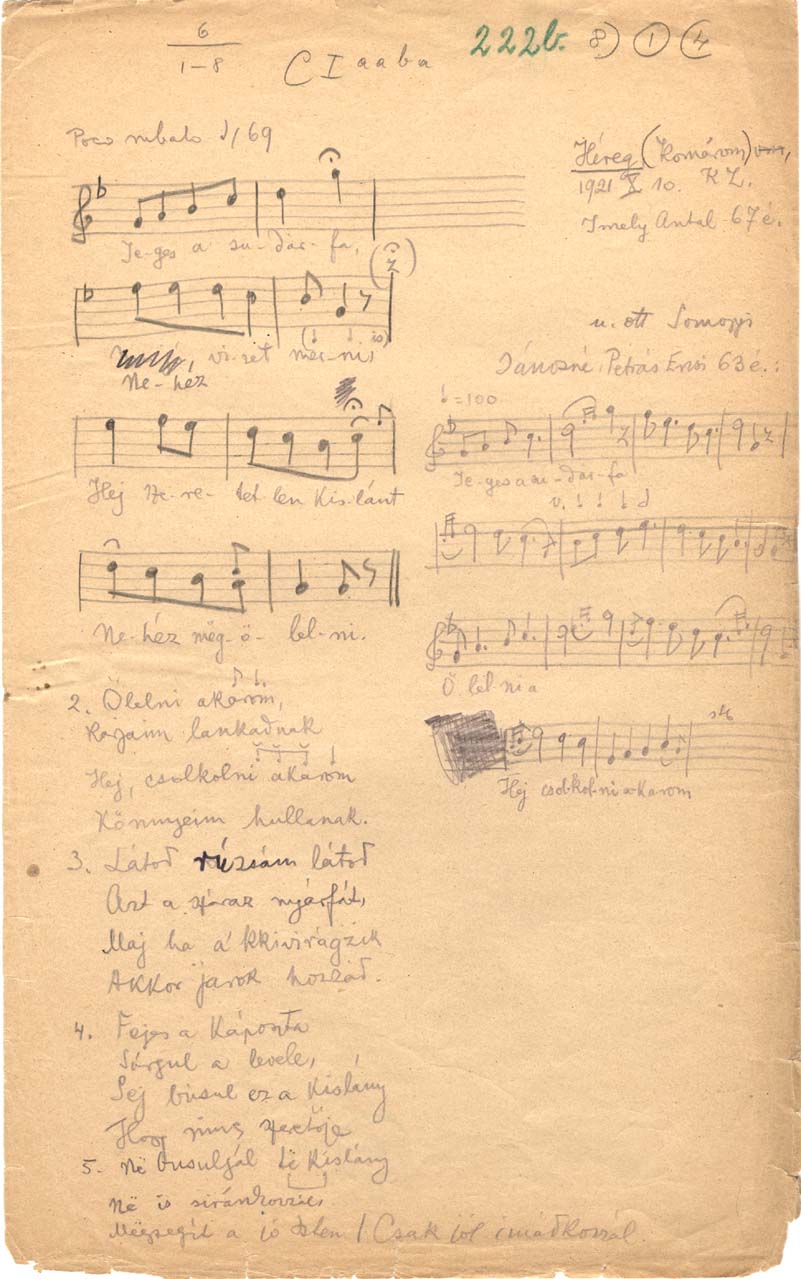 6
1-8
C I a a b a
222b.
8) 1 4
Poco rubato ♩/ 69
Héreg (Komárom)
1921 X 10. K Z.
Imely Antal 67 é.
Je-ges a su-dár-fa,
viz-et mer-ni,
Ne-héz
u. ott Somogyi
Jánosné Petrás Erzsi 63 é.:
♩=100
Hej sze-re-tet-len kis-lánt
Je-ges a su-dár-fa
v.
Ne-héz mëg-ö-lel-ni.
Ö lel-ni a
2. Ölelni akarom,
Karjaim lankadnak
Hej, csolkolni akarom
Könnyeim hullanak.
Hej csol-kol-ni a-karom
stb
3. Látod rúzsám látod
Azt a száraz nyárfát,
Maj ha a kkivirágzik
Akkor járok hozzád.
4. Fejes a káposzta
Sárgul a levele,
Sej búsul ez a kislány
Hogy nincs szeretője
5. Në búsuljál të kislány
Në is siránkozzál,
Mëgsegít a jó Isten / Csak jól imádkozzál.